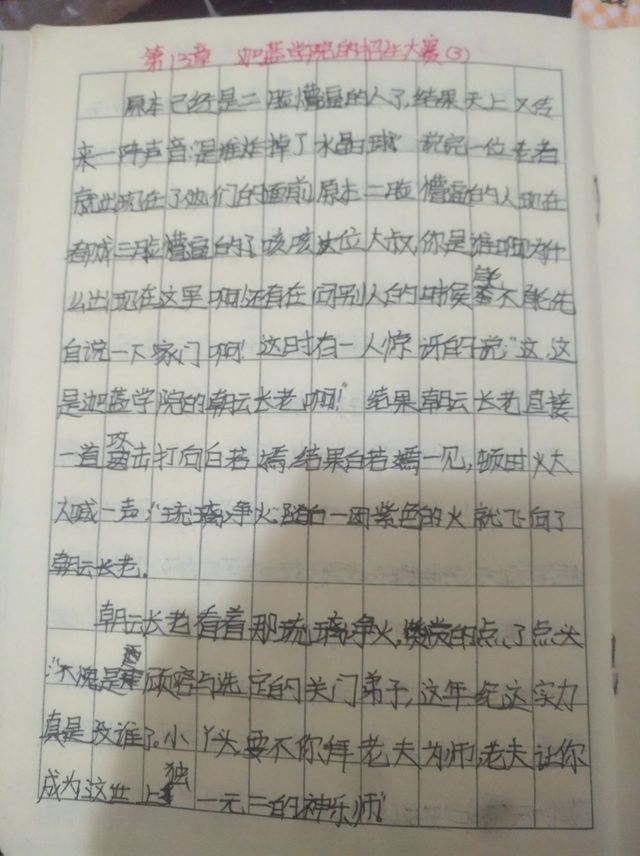 第13章 迦蓝学院的招生大赛(3)
原本已经是二脸懵逼的人了,结果天上又传
来一阵声音:"是谁炸掉了水晶球" 说完一位老者
就出现在了他们的面前,原本二脸懵逼的人现在
都成三脸懵逼的了咳咳这位大叔,你是谁啊为什
么出现在这里啊!还有在问别人的时候能不能先
自说一下家门啊! 这时有一人惊讶的说:"这,这
是迦蓝学院的朝云长老啊!" 结果朝云长老直接
一道攻击打向白若嫣,结果白若嫣一见,顿时火大
大喊一声:"琉璃净火"随白一团紫色的火就飞向了
朝云长老。
朝云长老看着那琉璃净火,赞赏的点了点头
:"不愧是西顾容与选定的关门弟子,这年纪这实力
真是没谁了。小丫头,要不你拜老夫为师,老夫让你
成为这世上独一无二的神乐师"